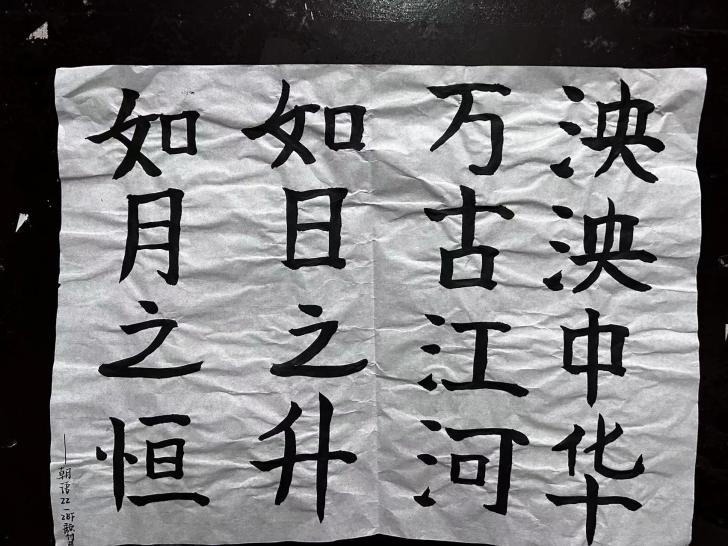 泱泱中华
万古江河
如日之升
如月之恒
——朝语22-2班